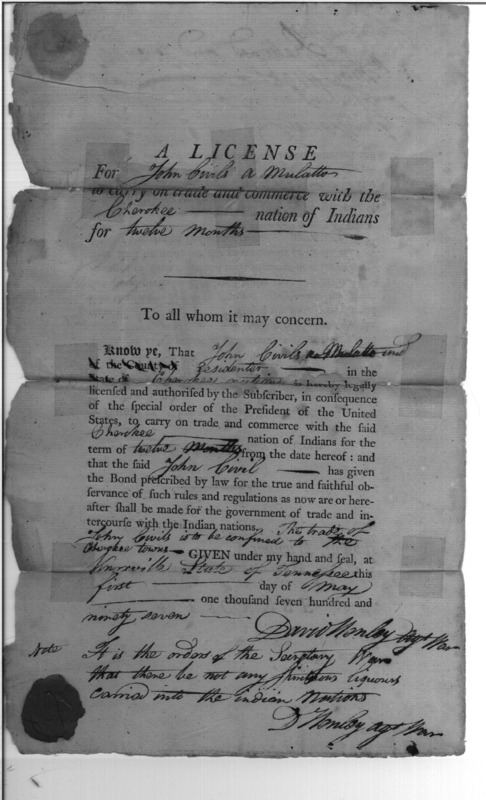 A LICENSE
For John Civils a Mulatto
to carry on trade and commerce with the
Cherokee nation of Indians
for twelve months
To all whom it may concern.
Know ye, That John Civils a Mulatto and
of the County of Residenter in the
State of Cherokee nation is hereby legally
licensed and authorised by the Subscriber, in consequence
of the special order of the President of the United
States, to carry on trade and commerce with the said
Cherokee nation of Indians for the
term of twelve Months from the date hereof: and
that the said John Civil has given
the Bond prescribed by law for the true and faithful ob-
servance of such rules and regulations as now are or here-
after shall be made for the government of trade and in-
tercourse with the Indian nations. The trade of
John Civils is to be confined to
towns— GIVEN under my hand and seal, at
Knoxville State of Tennessee this
first day of May
one thousand seven hundred and
ninety seven
David Henley agt War
Note It is the orders of the Secretary War
that there be not any spiritous liquours
carried into the indian Nations
D Henley agt War